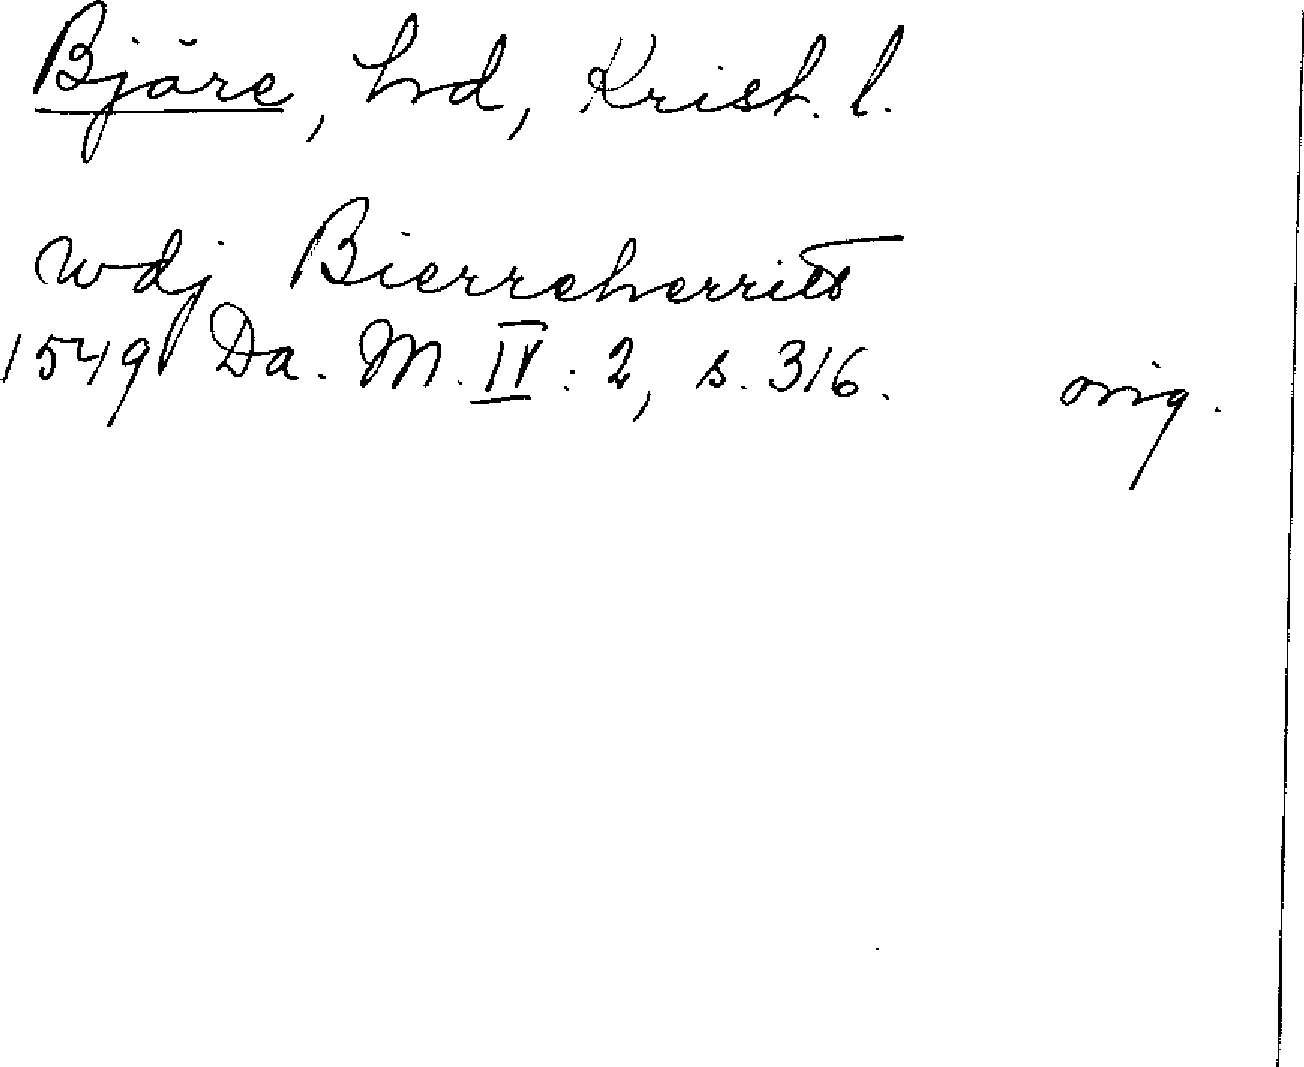 Bjäre, hd, Krist. l.
wdj Bierreherritt
1549 Da. M. IV: 2, s. 316. orig.